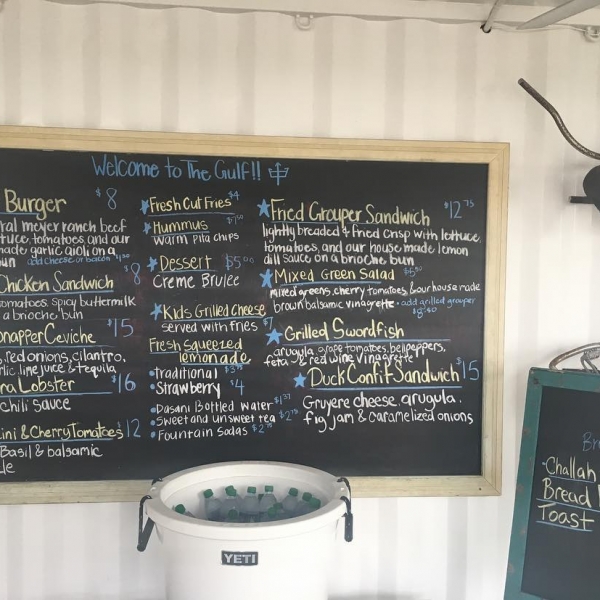 Welcome to The Gulf!!
Burger $8
ral meyer ranch beef
tuce, tomatoes, and our
made garlic aioli on a
un add cheese or bacon $1.50
Chicken Sandwich $8
omatoes, spicy buttermilk
a brioche bun
onapper Ceviche $15
s, red onions, cilantro,
rlic, lime juice & tequila
ra Lobster $16
chili sauce
ini & Cherry Tomatoes $12
Basil & balsamic
le
Fresh Cut Fries $4
Hummus
Warm pita chips
Dessert $5.00
Creme Brulee
Kids Grilled Cheese
served with fries $7
Fresh squeezed
lemonade,
traditional
Strawberry $4
Dasani Bottled Water
Sweet and unsweet tea
Fountain Sodas
Fried Grouper Sandwich $12.75
lightly breaded & fried crisp with lettuce,
tomatoes, and our house made lemon
dill sauce on a brioche bun
Mixed Green Salad
mixed greens, cherry tomatoes, & our house made
brown balsamic vinagrette - add grilled grouper
Grilled Swordfish
arugula, grape tomatoes, bell peppers,
feta & red wine vinagrette
Duck Confit Sandwich $15
Gruyere cheese, arugula,
fig jam & caramelized onions
YETI
Challah
Bread
Toast